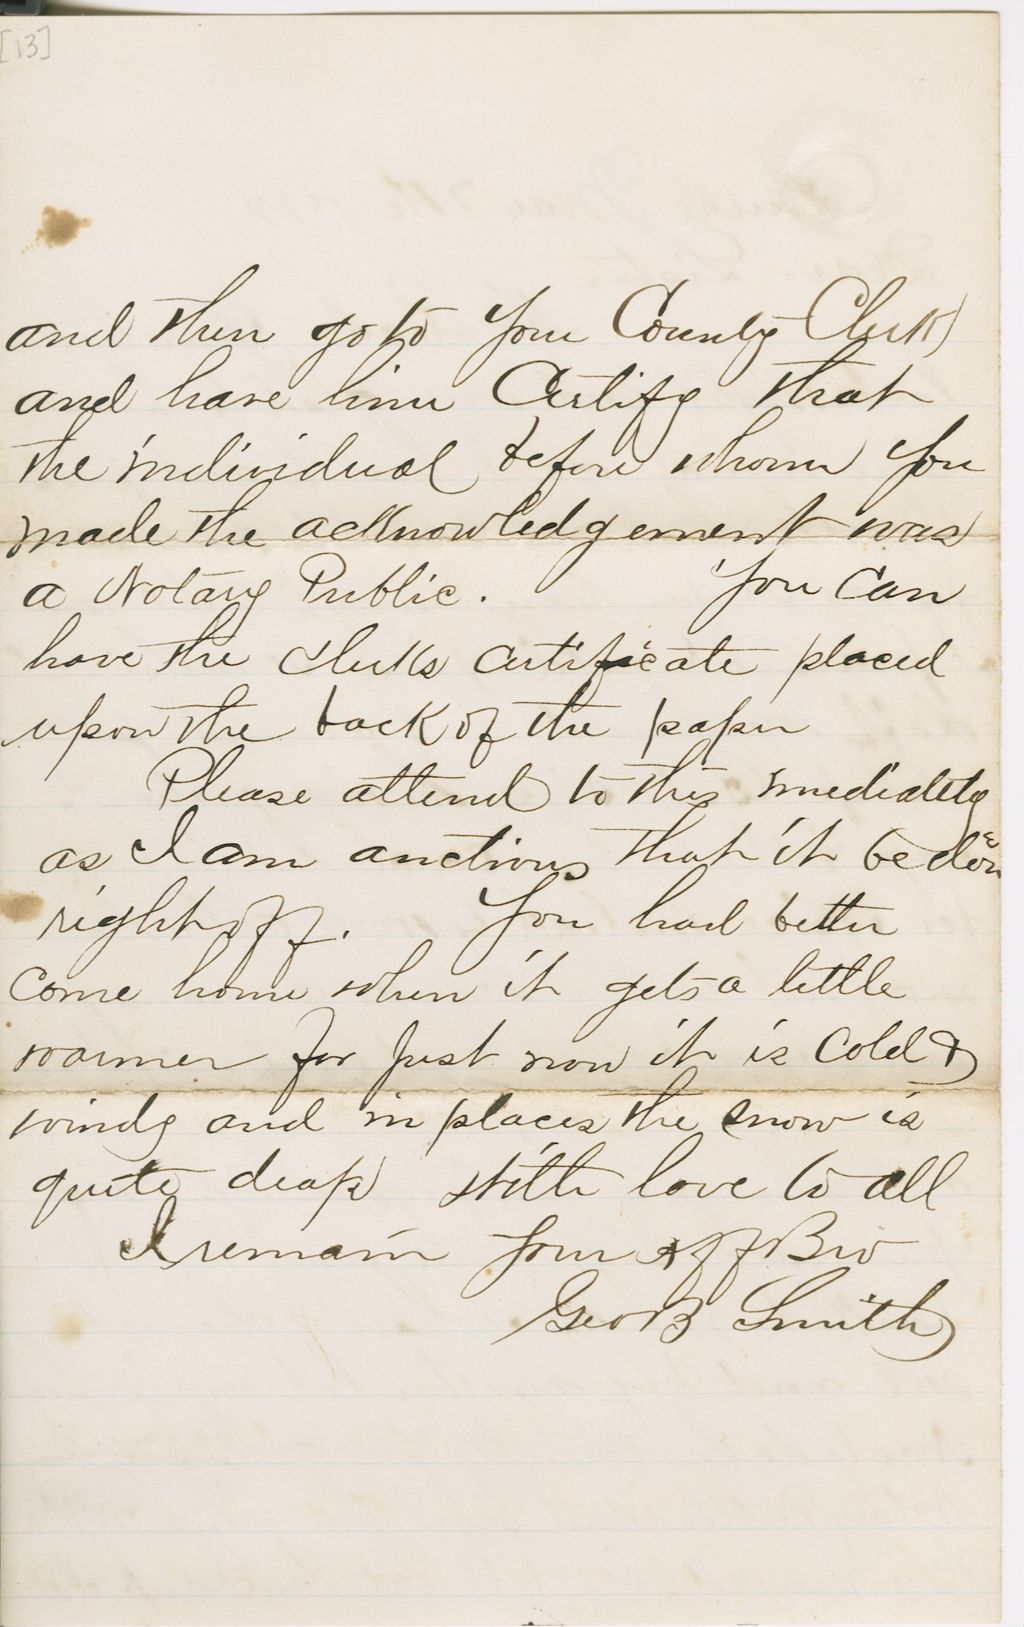 [13]
and then go to your County Clerk
and have him Certify that
the individual before whom you
made the acknowledgement was
a Notary Public. You can
have the clerks certificate placed
upon the back of the paper
Please attend to this imediately
as I am anctious that it be done
right off. You had better
come home when it gets a little
warmer for just now it is cold &
windy and in places the snow is
quite deap with love to all
I remain your Aff Bro
Geo B Smith